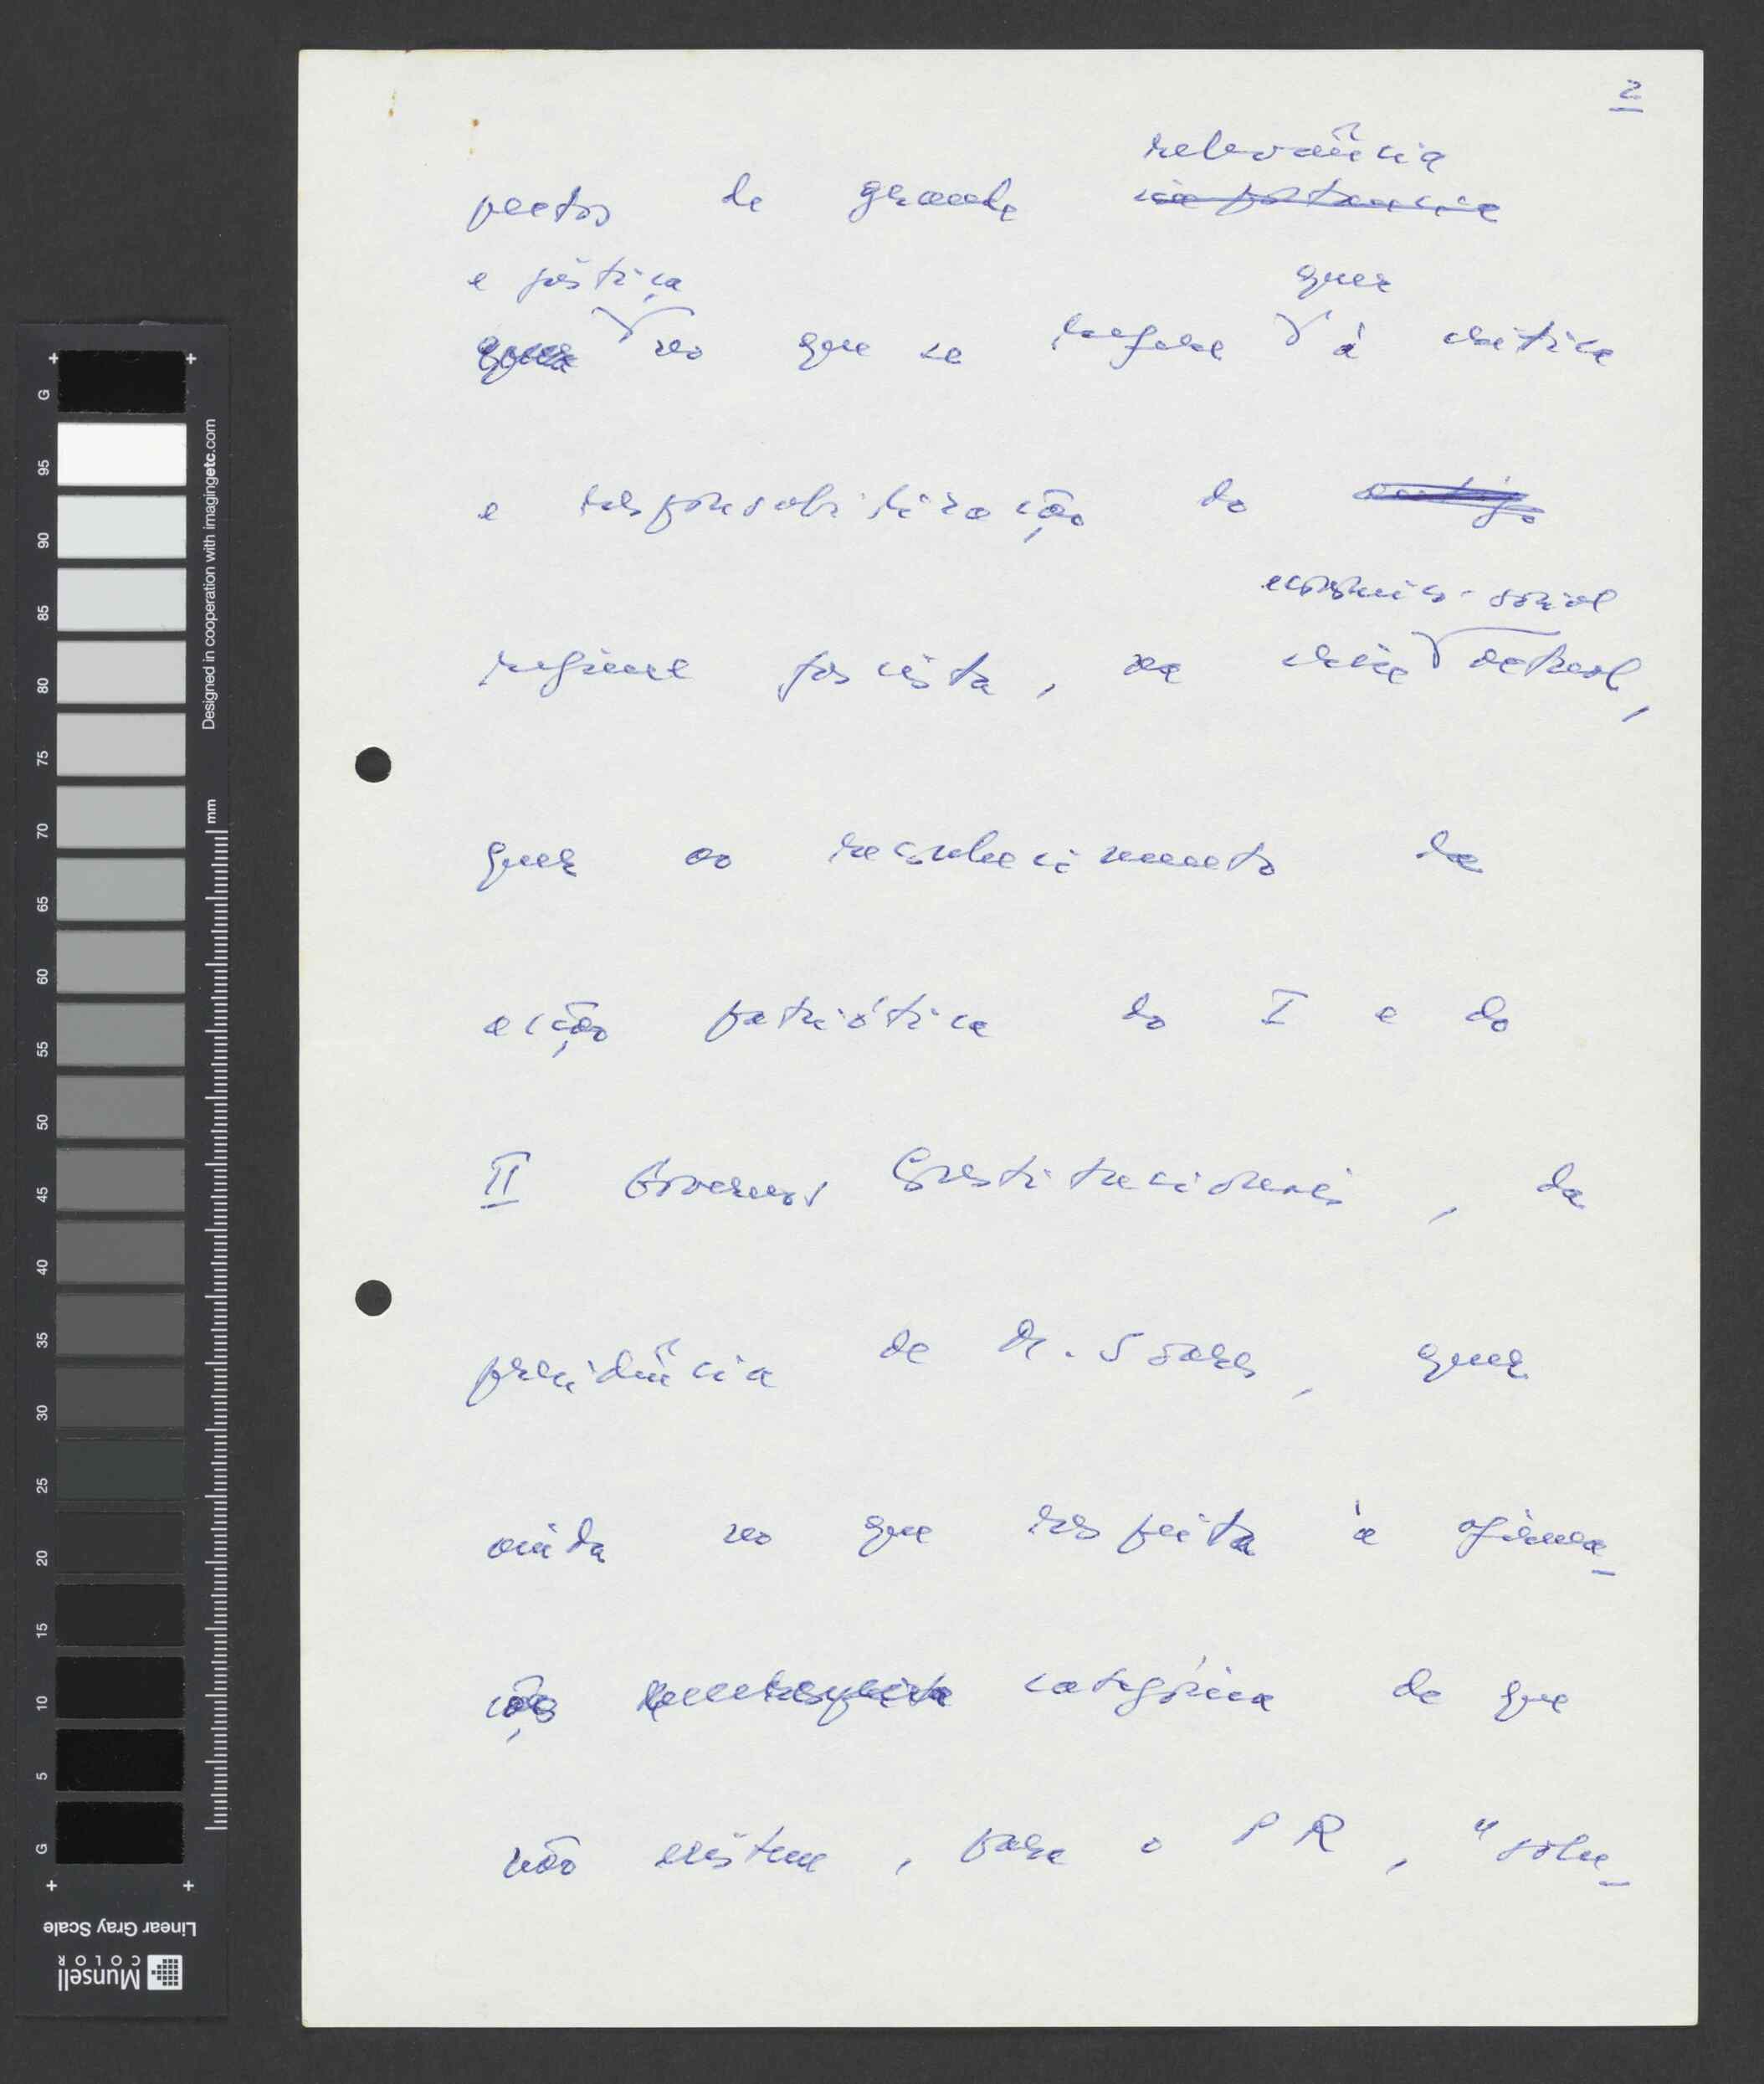 2
relevância
pectos de grande importancia
e justiça quer
quer no que se refere à crítica
e responsabilização do antigo
económico-social
regime fascista, na crise actual,
quer ao reconhecimento da
acção patriótica do I e do
II Governos Constitucionais, da
presidência de Dr. Soares, quer
ainda no que respeita à afirma-
ção categórica de que
não existem, para o PR, "solu-
G
95
90
85
80
75
70
65
60
55
50
45
40
35
30
25
20
15
10
5
G
Designed in cooperation with imagingetc.com
mm
Linear Gray Scale
Munsell
COLOR